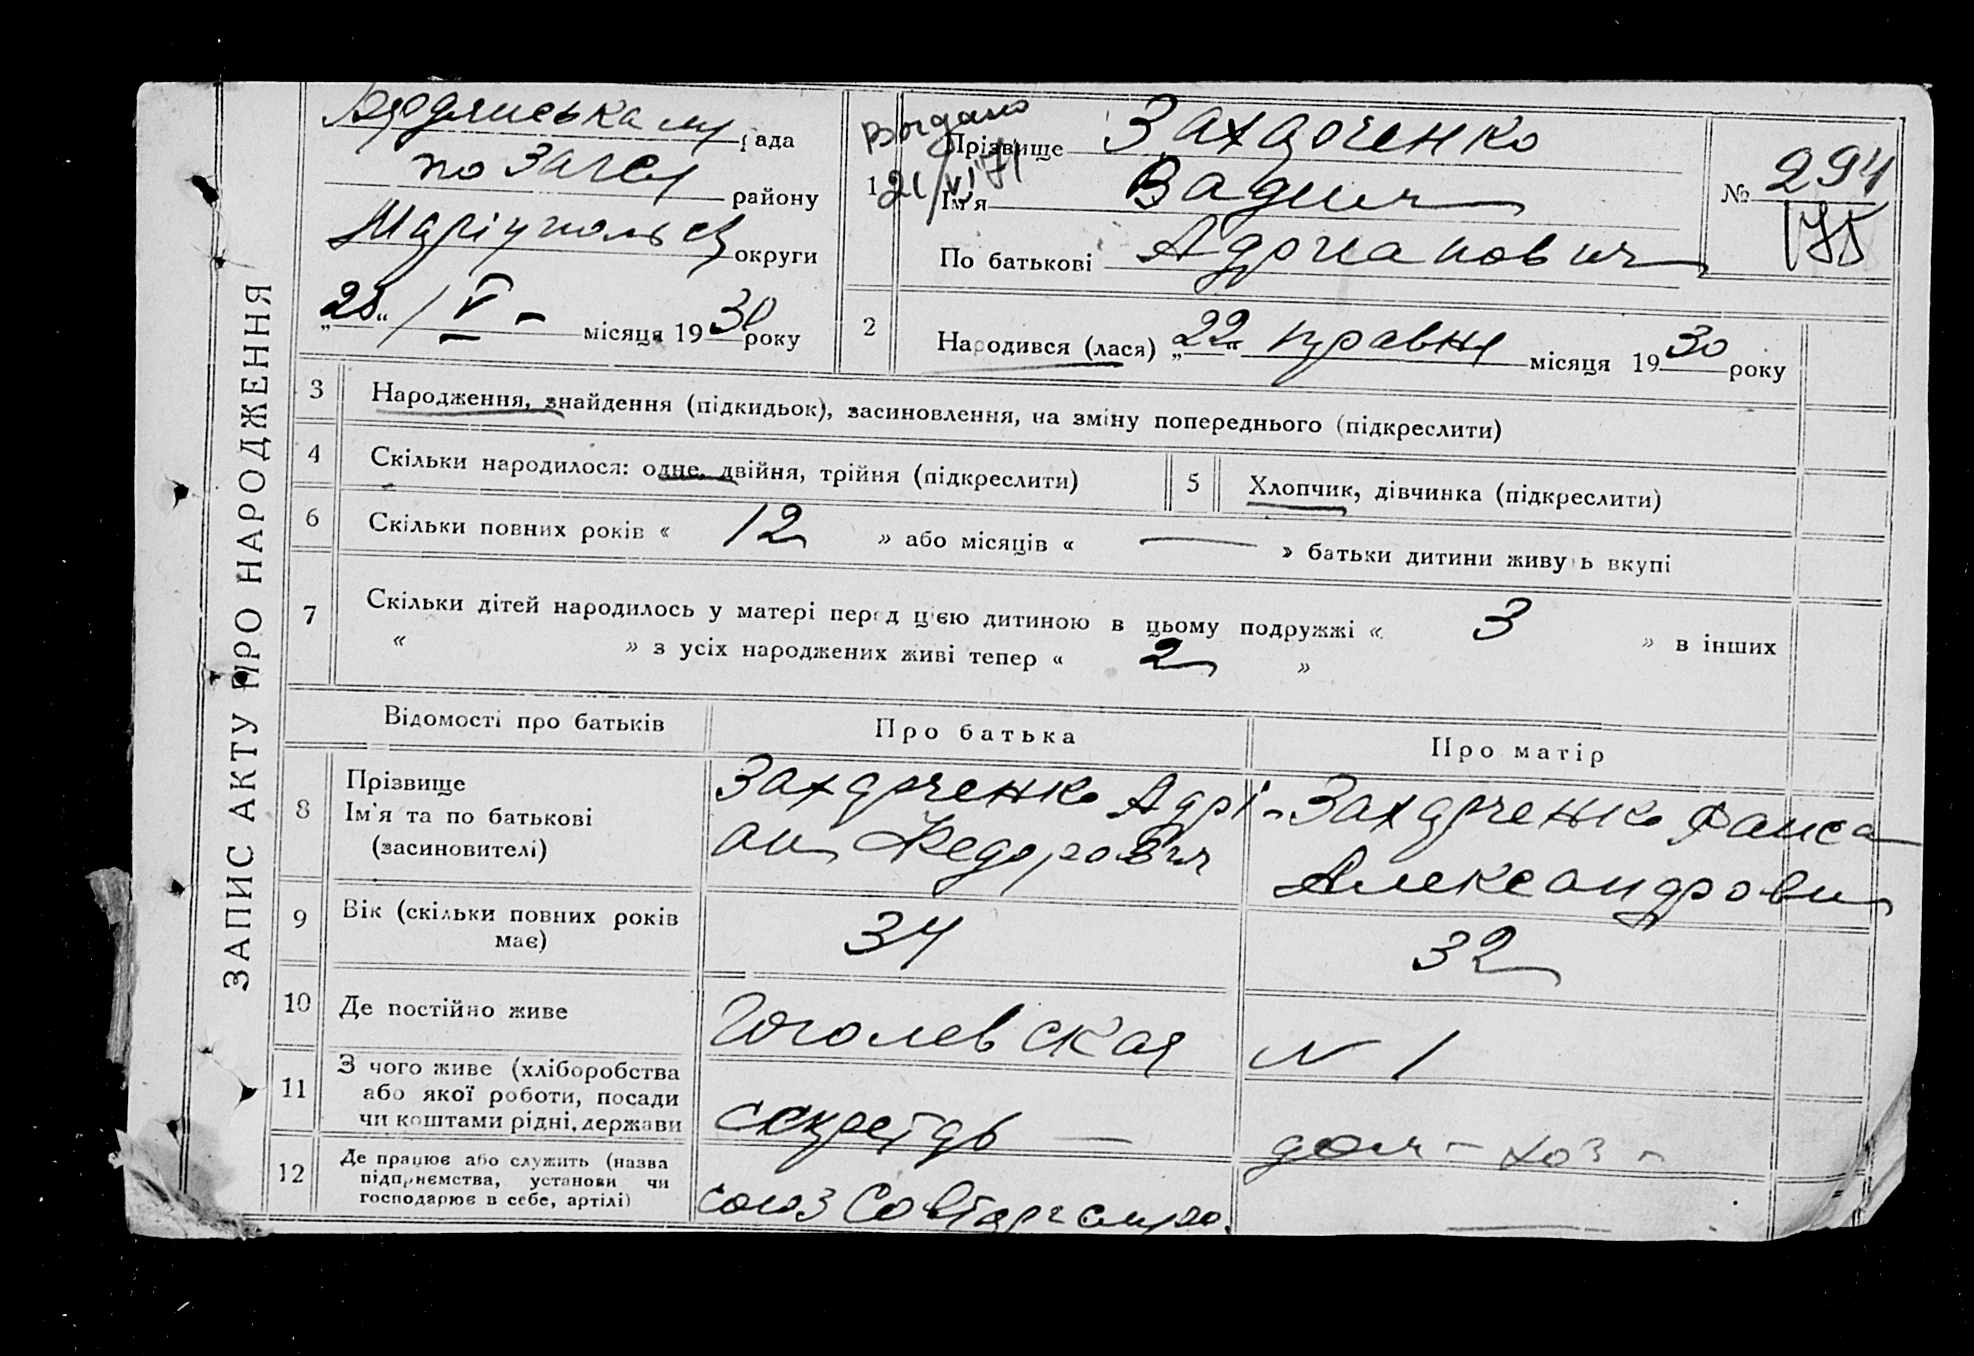 ЗАПИС АКТУ ПРО НАРОДЖЕННЯ
рада
по загсу
району
Маріупольськ округи
„28“ / V - місяця 1930 року
1
21/VI 71
Прізвище Захарченко
Ім'я Вадим
По батькові Адрианович
№ 294
175
2
Народився (лася) „22“ травня місяця 1930 року
3 Народження, знайдення (підкидьок), засиновлення, на зміну попереднього (підкреслити)
4 Скільки народилося: одне, двійня, трійня (підкреслити)
5 Хлопчик, дівчинка (підкреслити)
6 Скільки повних років « 12 » або місяців « — » батьки дитини живуть вкупі
7 Скільки дітей народилось у матері перед цією дитиною в цьому подружжі « 3 » в інших
« » з усіх народжених живі тепер « 2 »
Відомості про батьків
Про батька
Про матір
8
Прізвище
Ім'я та по батькові
(засиновителі)
Захарченко Адрі-
ан Федорович
Захарченко Раиса
Александровн
9
Вік (скільки повних років
має)
34
32
10 Де постійно живе
Гоголевская
N 1
11
З чого живе (хліборобства
або якої роботи, посади
чи коштами рідні, держави
секретарь —
дом - хоз -
12
Де працює або служить (назва
підприємства, установи чи
господарює в себе, артілі)
союз Совторгслуж.